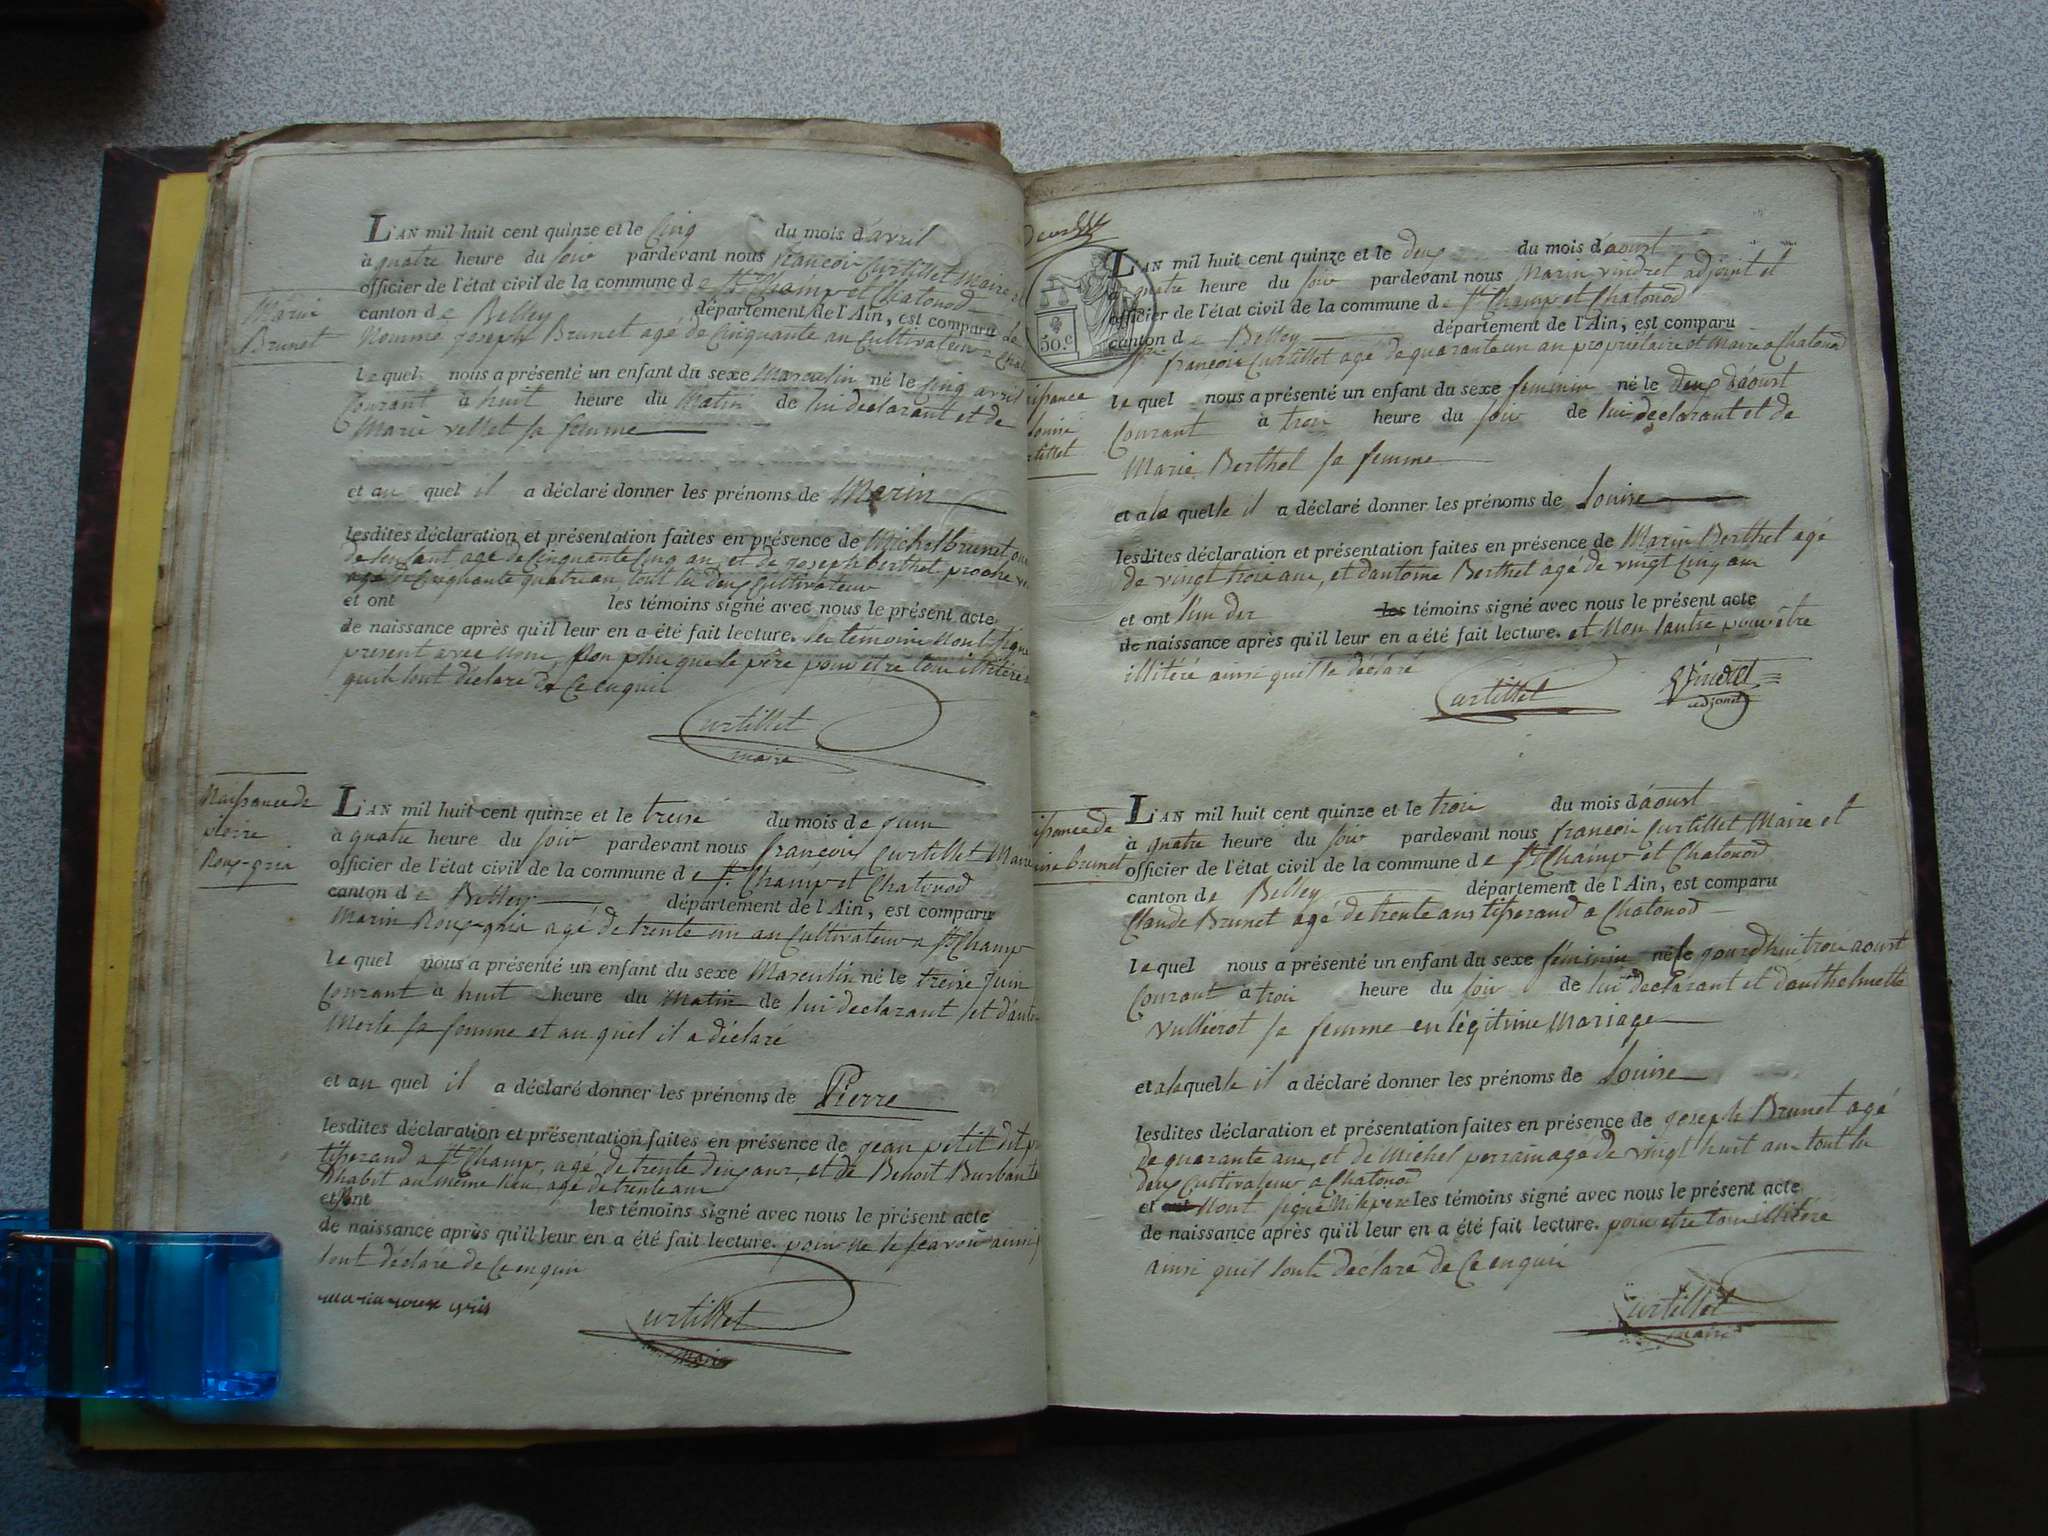 Marin
Brunet
L'AN mil huit cent quinze et le Cinq du mois d'avril
à quatre heure du soir pardevant nous françois Curtillet Maire et
officier de l'état civil de la commune de St Champ et Chatonod
canton de Belley département de l'Ain, est comparu Le
Nommé joseph Brunet agé de Cinquante an Cultivateur a
lequel nous a présenté un enfant du sexe Masculin né le cinq avril
Courant à huit heure du Matin de lui déclarant et de
Marie vellet sa femme
et au quel il a déclaré donner les prénoms de Marin
lesdites déclaration et présentation faites en présence de Michel brunet
de lenfant agé de Cinquante Cinq an, et de joseph berthet proche
agé de Cinquante quatre an tout les deux Cultivateur
et ont les témoins signé avec nous le présent acte
de naissance après qu'il leur en a été fait lecture. les témoin nont signé
present avec nous, Non plus que le père pour etre tous illitéré
quils lont déclaré de Ce enquis
Curtillet
maire
Naissance de
pierre
Roux-gris
L'AN mil huit cent quinze et le treise du mois de juin
à quatre heure du soir pardevant nous françois Curtillet Maire
officier de l'état civil de la commune de St Champ et Chatonod
canton de Belley département de l'Ain, est comparu
Marin Roux-gris agé de trente un an Cultivateur a St Champ
lequel nous a présenté un enfant du sexe Masculin né le treise juin
Courant à huit heure du Matin de lui déclarant et
Merle sa femme et au quel il a déclaré
et au quel il a déclaré donner les prénoms de Pierre
lesdites déclaration et présentation faites en présence de jean petit dit
tisserand a St Champ, agé de trente deux ans, et de Benoit
Dhabit au même lieu agé de trente ans
et ont les témoins signé avec nous le présent acte
de naissance après qu'il leur en a été fait lecture. pour ne le scavoir ainsi
lont déclaré de Ce enquis
Curtillet
maire
50.c
naissance
Louise
L'AN mil huit cent quinze et le deux du mois d'aoust
à quatre heure du soir pardevant nous Marin vindret adjoint et
officier de l'état civil de la commune de St Champ et Chatonod
canton de Belley département de l'Ain, est comparu
françois Curtillet agé de quarante un an propriétaire et Maire a Chatonod
lequel nous a présenté un enfant du sexe feminin né le deux d'aoust
Courant à trois heure du soir de lui déclarant et de
Marie Berthet sa femme
et a la quelle il a déclaré donner les prénoms de Louise
lesdites déclaration et présentation faites en présence de Marin Berthet agé
de vingt trois ans, et dantoine Berthet agé de vingt Cinq ans
et ont l'un des les témoins signé avec nous le présent acte
de naissance après qu'il leur en a été fait lecture. et Non lautre pour être
illitéré ainsi quil la déclaré
Curtillet
Vindret
adjoint
brunet
L'AN mil huit cent quinze et le trois du mois d'aoust
à quatre heure du soir pardevant nous françois Curtillet Maire et
officier de l'état civil de la commune de St Champ et Chatonod
canton de Belley département de l'Ain, est comparu
Claude Brunet agé de trente ans tisserand a Chatonod
lequel nous a présenté un enfant du sexe féminin né le jourdhui trois aoust
Courant à trois heure du soir de lui déclarant et danthelmette
Vullierot sa femme en légitime Mariage
et a la quelle il a déclaré donner les prénoms de Louise
lesdites déclaration et présentation faites en présence de joseph Brunet agé
de quarante ans, et de Michel perrain agé de vingt huit an tout les
deux Cultivateur a Chatonod
et ont Nont signé Ni le pere les témoins signé avec nous le présent acte
de naissance après qu'il leur en a été fait lecture. pour etre tous illitéré
ainsi quil lont déclaré de Ce enquis
Curtillet
maire